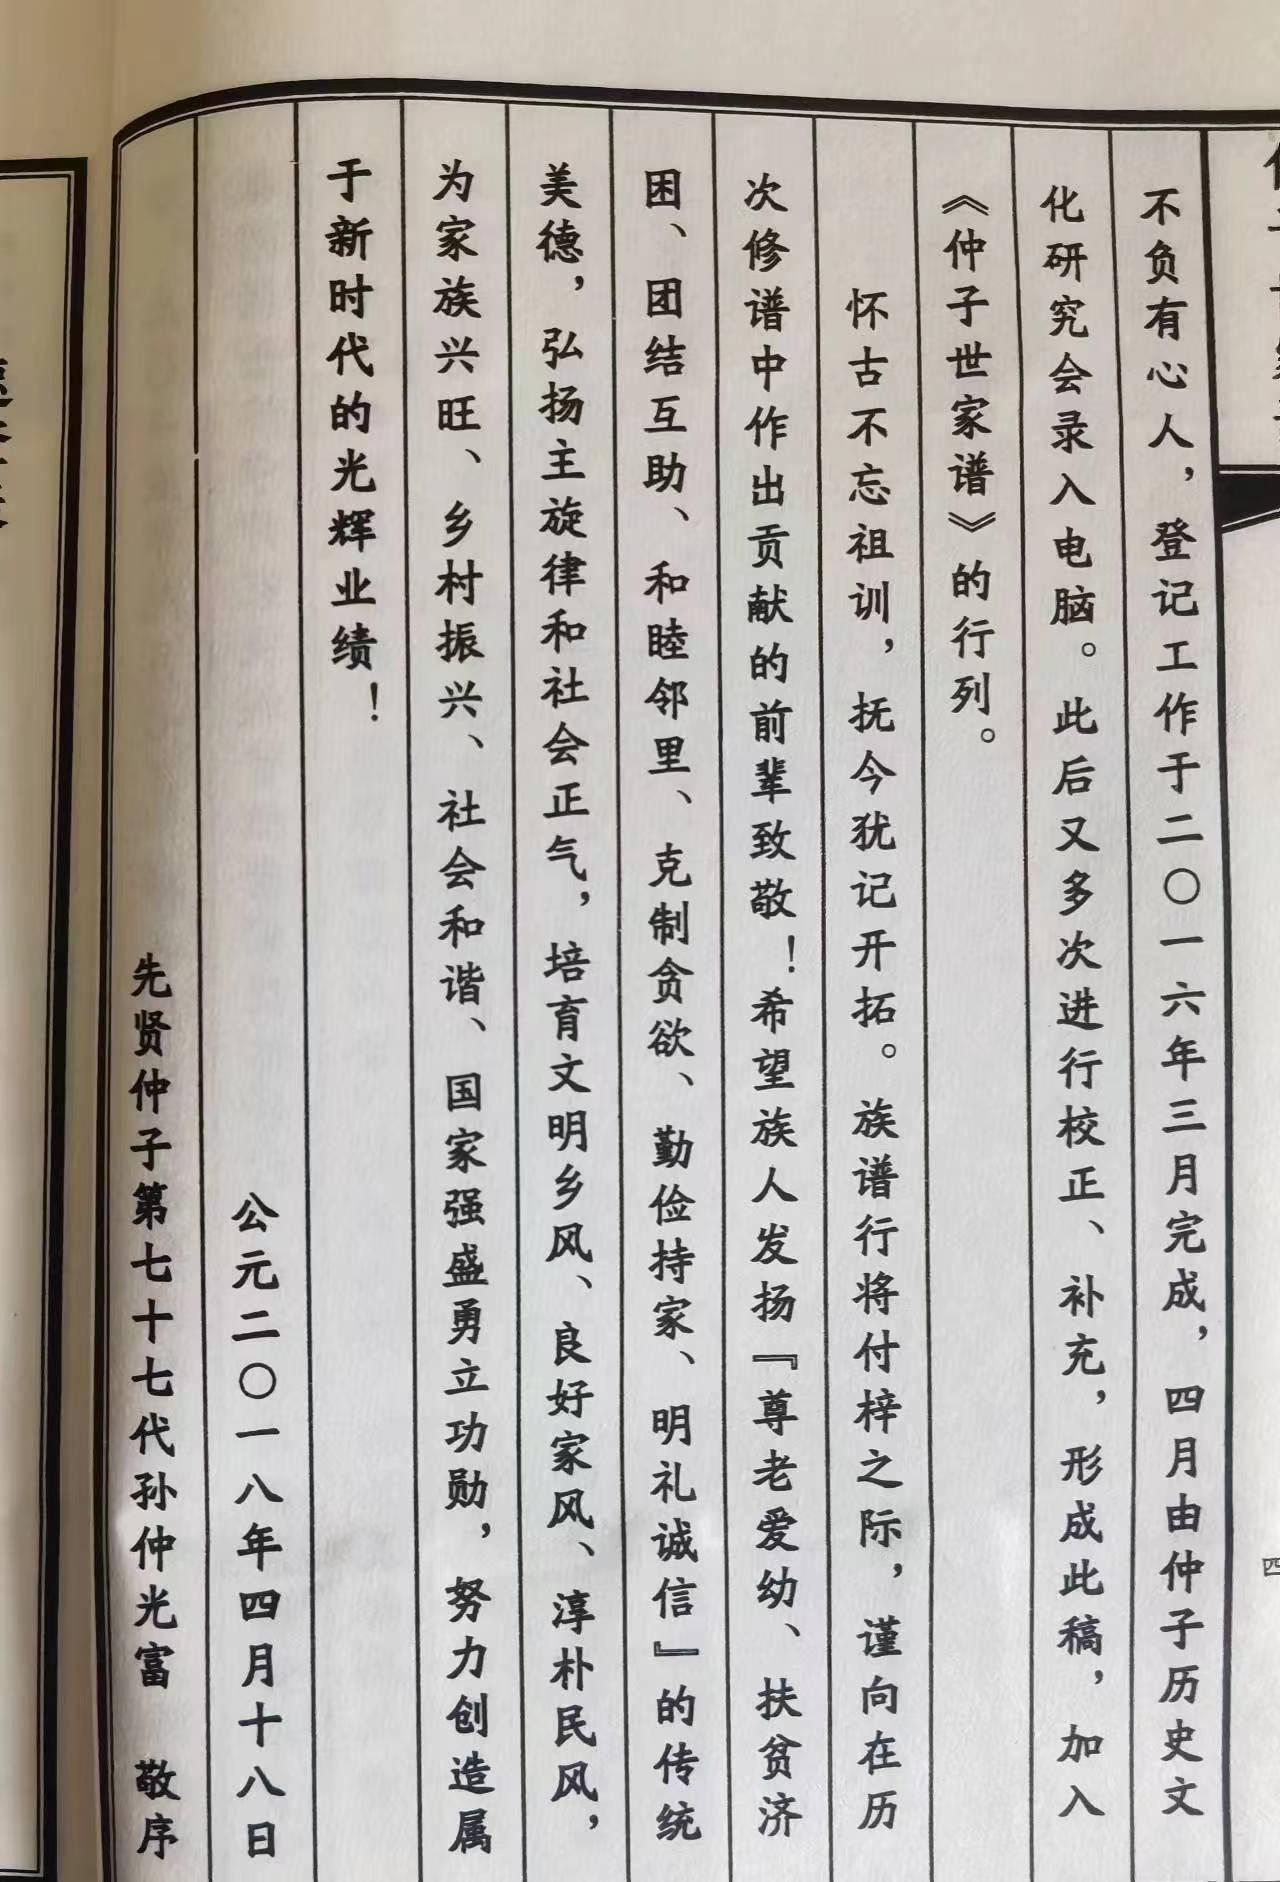 不负有心人，登记工作于二〇一六年三月完成，四月由仲子历史文
化研究会录入电脑。此后又多次进行校正、补充，形成此稿，加入
《仲子世家谱》的行列。
怀古不忘祖训，抚今犹记开拓。族谱行将付梓之际，谨向在历
次修谱中作出贡献的前辈致敬！希望族人发扬『尊老爱幼、扶贫济
困、团结互助、和睦邻里、克制贪欲、勤俭持家、明礼诚信』的传统
美德，弘扬主旋律和社会正气，培育文明乡风、良好家风、淳朴民风，
为家族兴旺、乡村振兴、社会和谐、国家强盛勇立功勋，努力创造属
于新时代的光辉业绩！
公元二〇一八年四月十八日
先贤仲子第七十七代孙仲光富　敬序